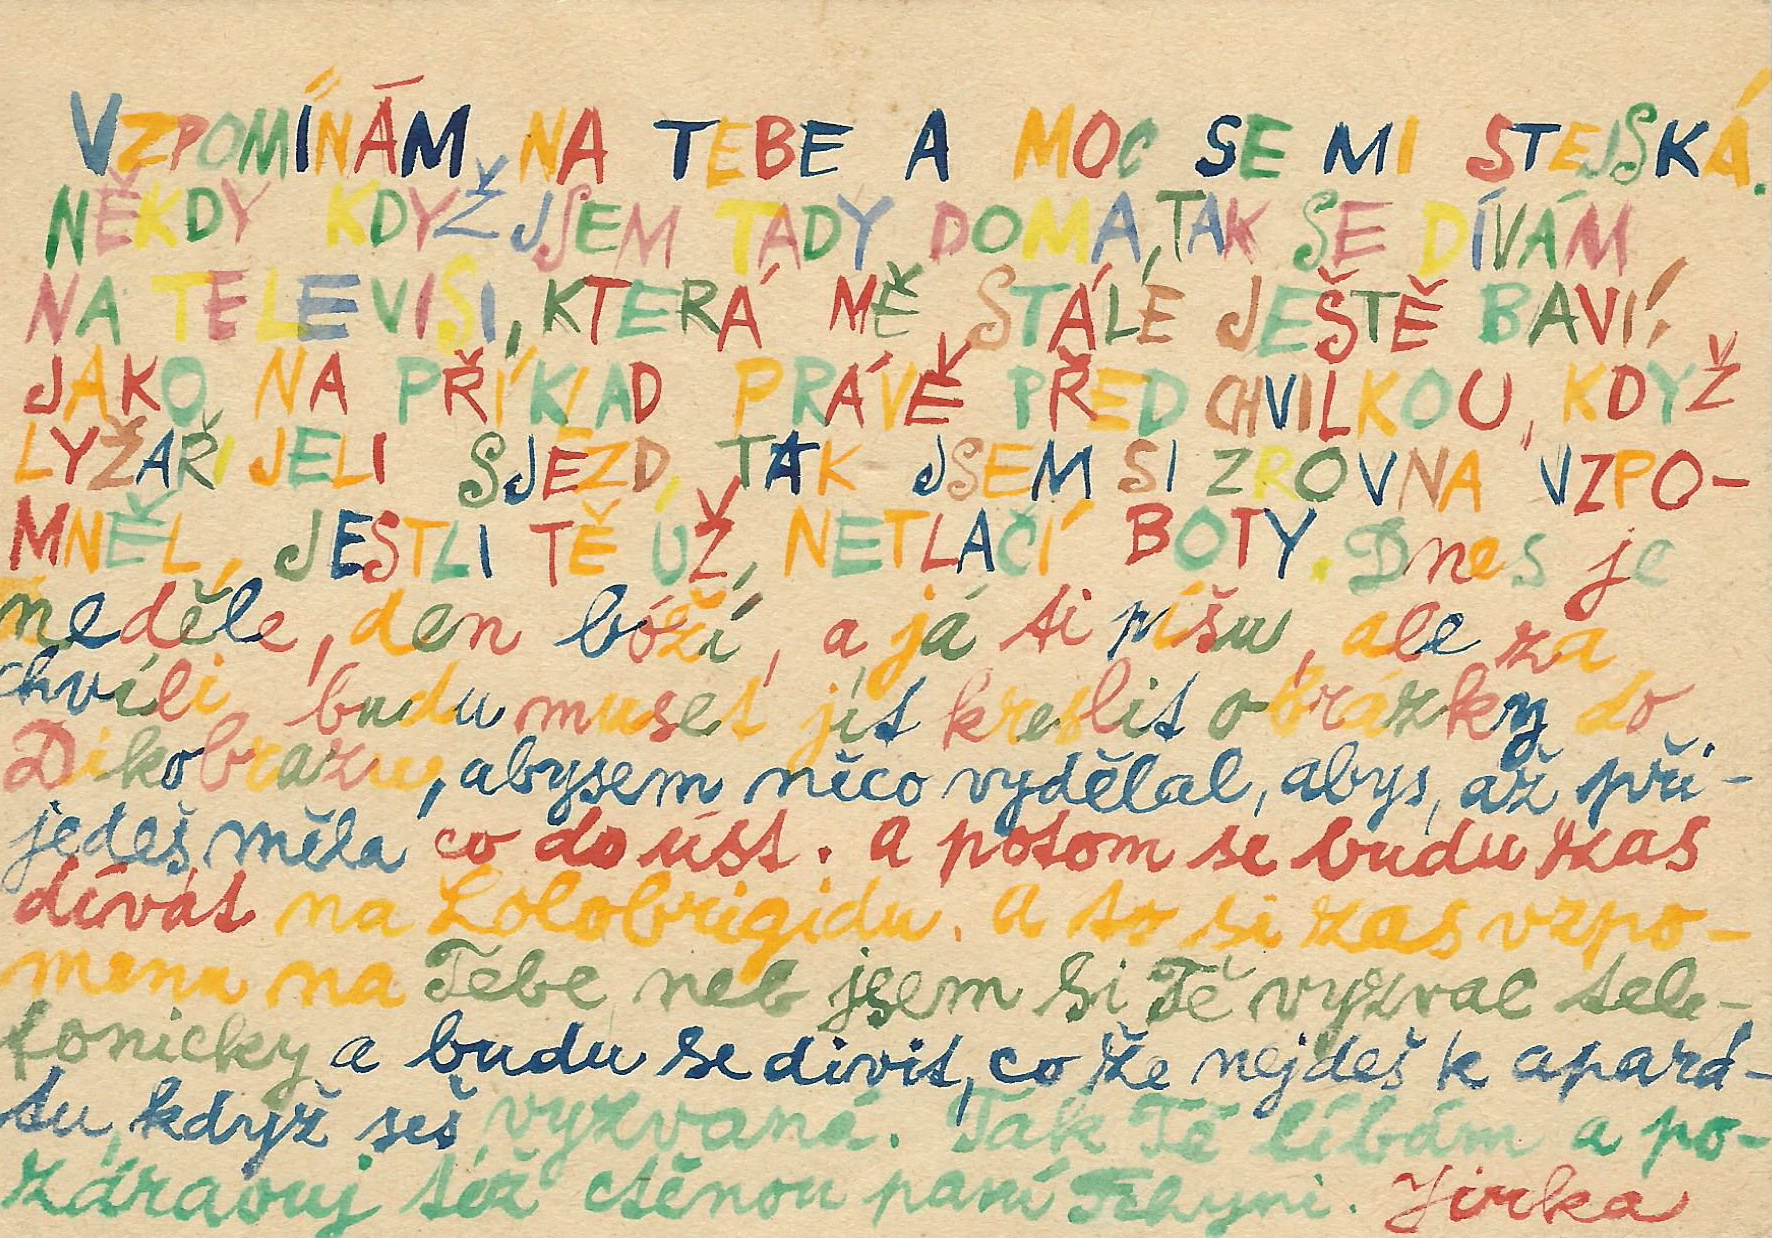 VZPOMÍNÁM NA TEBE A MOC SE MI STEJSKÁ.
NĚKDY KDYŽ JSEM TADY DOMA, TAK SE DÍVÁM
NA TELEVISI, KTERÁ MĚ STÁLE JEŠTĚ BAVÍ.
JAKO NA PŘÍKLAD PRÁVĚ PŘED CHVILKOU, KDYŽ
LYŽAŘI JELI SJEZD, TAK JSEM SI ZROVNA VZPO-
MNĚL, JESTLI TĚ UŽ, NETLAČÍ BOTY. Dnes je
neděle, den boží, a já ti píšu, ale za
chvíli budu muset jít kreslit obrázky do
Dikobrazu, abysem něco vydělal, abys, až při-
jedeš měla co do úst. a potom se budu zas
dívat na Lolobrigidu. a to si zas vzpo-
menu na Tebe, neb jsem si Tě vyzval tele-
fonicky a budu se divit, co že nejdeš k apará-
tu, když seš vyzvaná. Tak Tě líbám a po-
zdravuj též ctěnou paní Tchyni. Jirka